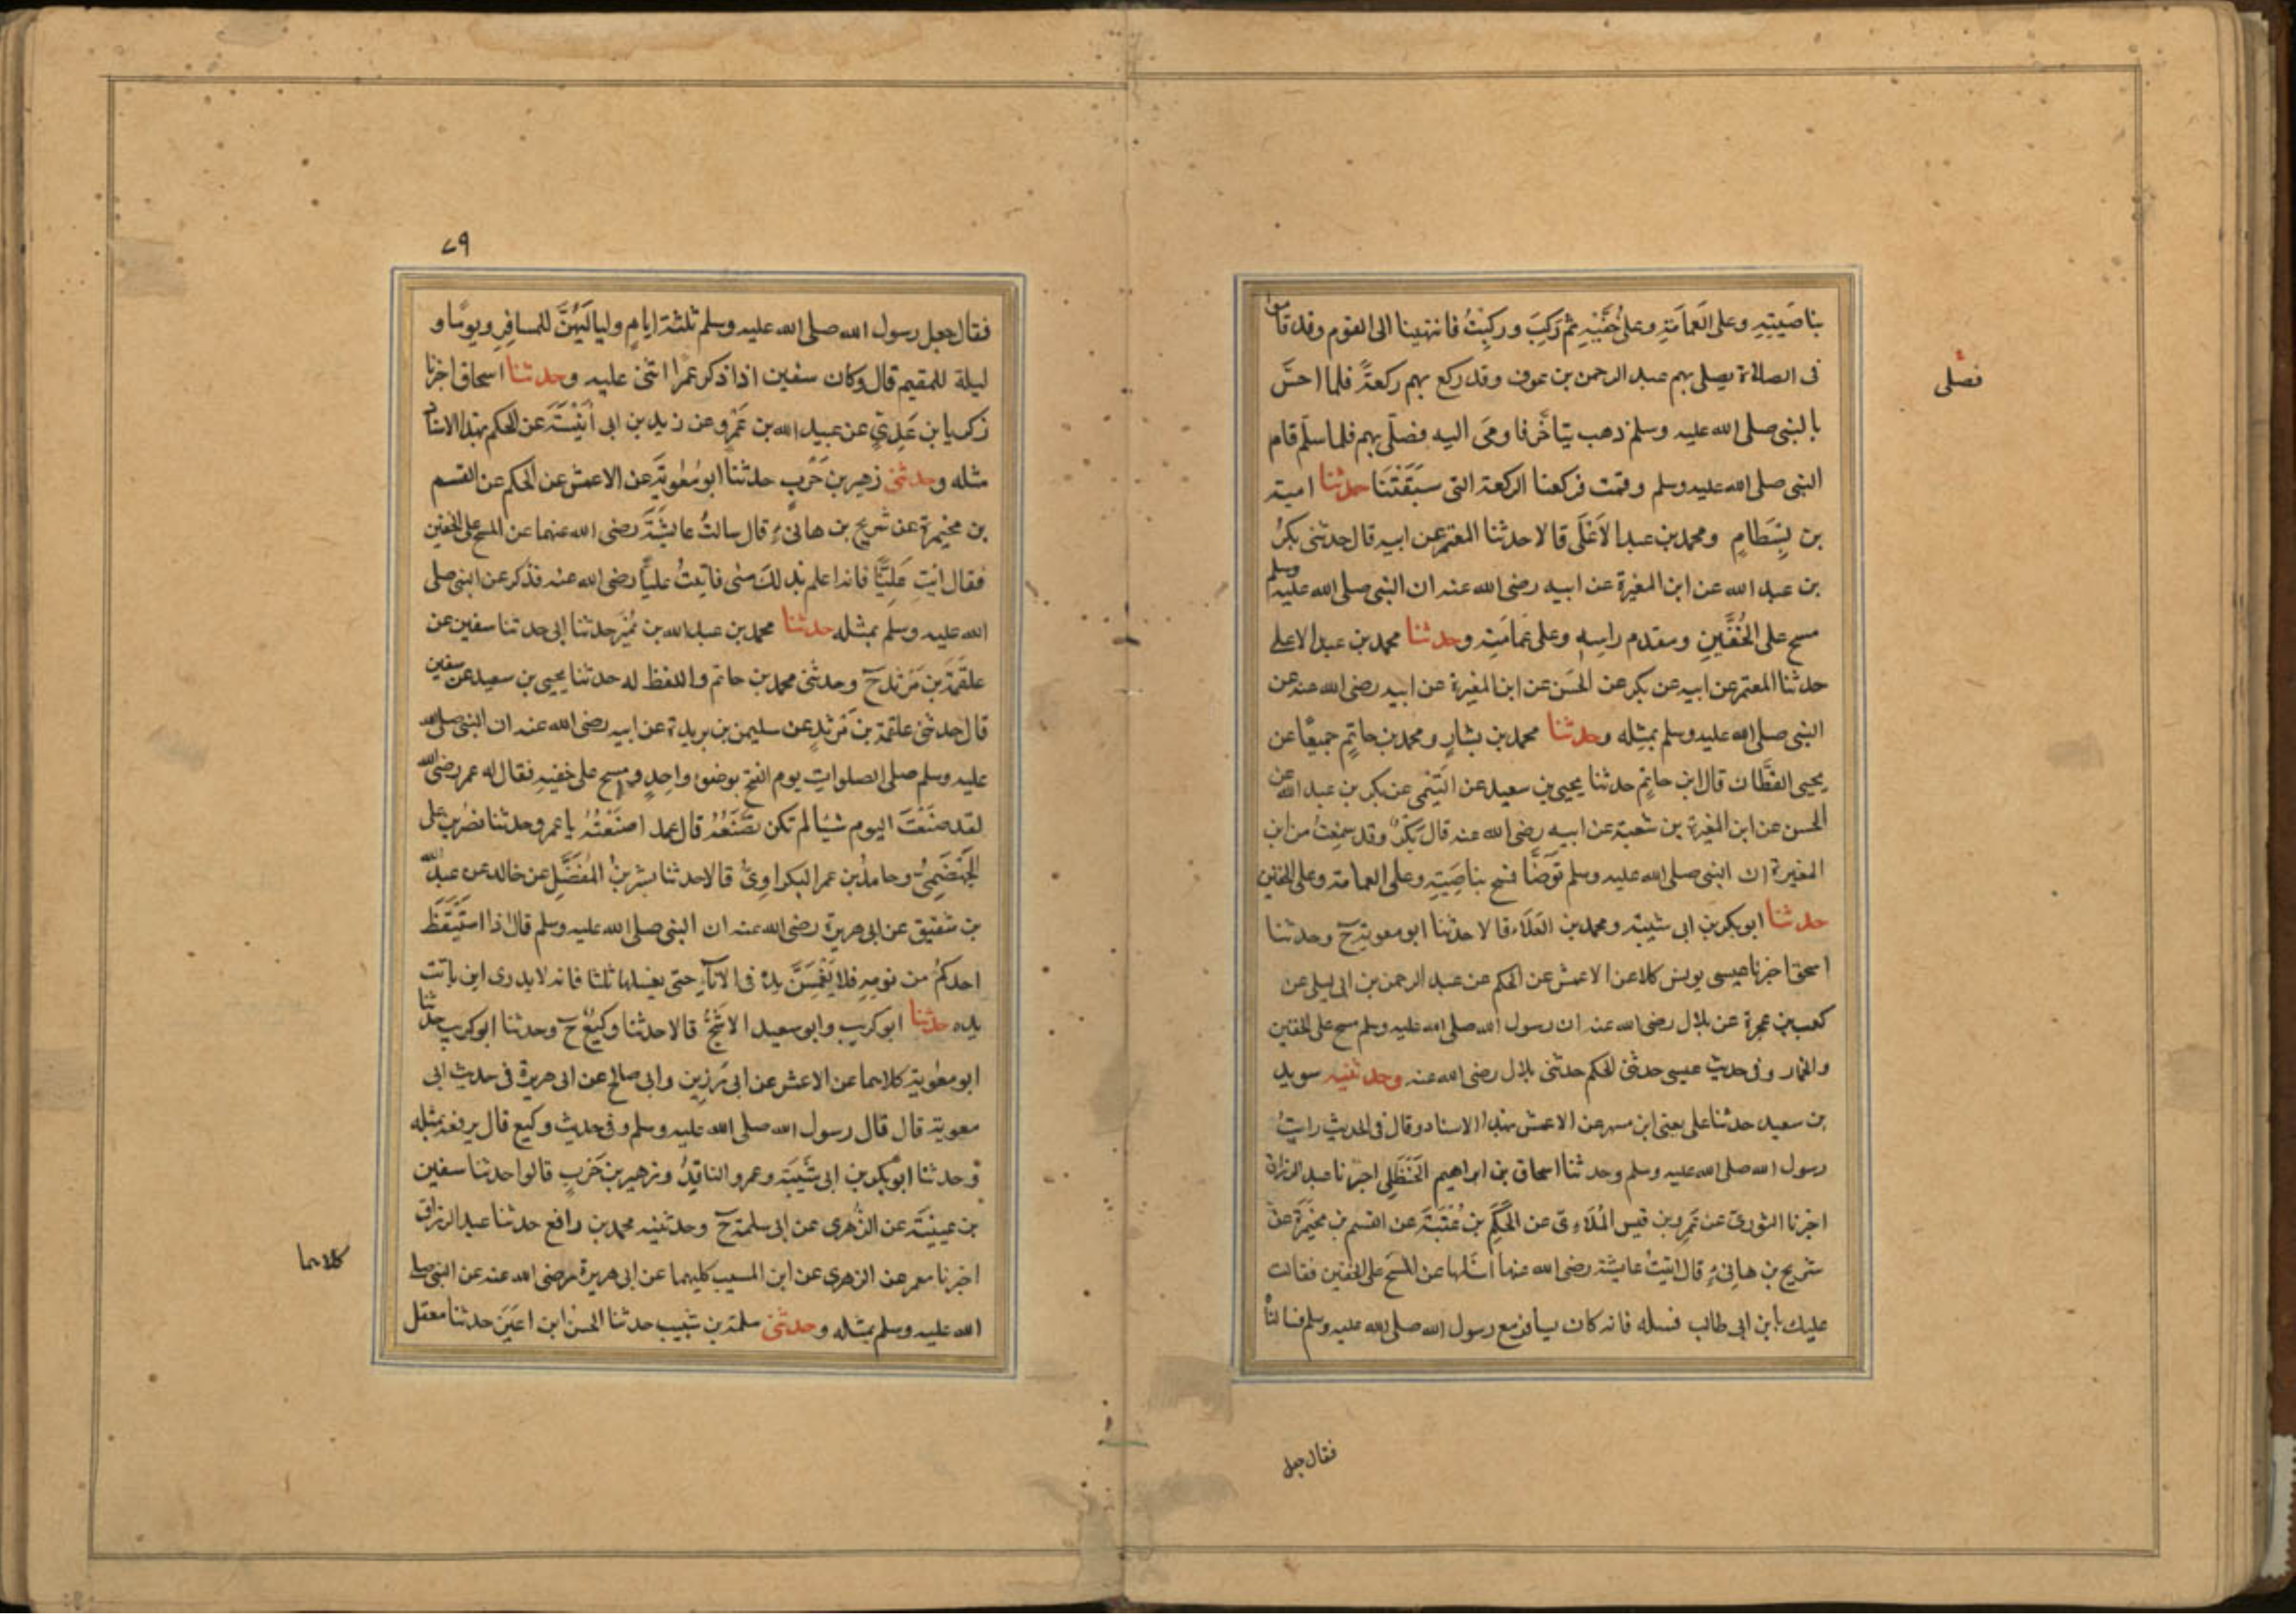 بناصيته وعلى العمامة وعلى خفيه ثم ركب وركبت فانتهينا الى القوم وقد قاموا
فى الصلاة يصلى بهم عبد الرحمن بن عوف وقد ركع بهم ركعة فلما احسّ
فصلى
بالنبى صلى الله عليه وسلم ذهب يتاخر فاومى اليه فصلّى بهم فلما سلّم قام
النبى صلى الله عليه وسلم وقمت فركعنا الركعة التى سبقتنا حدثنا امية
بن بسطام ومحمد بن عبد الاعلى قالا حدثنا المعتمر عن ابيه قال حدثنى بكر
بن عبد الله عن ابن المغيرة عن ابيه رضى الله عنه ان النبى صلى الله عليه وسلم
مسح على الخفين ومقدم راسه وعلى عمامته وحدثنا محمد بن عبد الاعلى
حدثنا المعتمر عن ابيه عن بكر عن الحسن عن ابن المغيرة عن ابيه رضى الله عنه عن
النبى صلى الله عليه وسلم بمثله وحدثنا محمد بن بشار ومحمد بن حاتم جميعًا عن
يحيى القطان قال ابن حاتم حدثنا يحيى بن سعيد عن التيمى عن بكر بن عبد الله عن
الحسن عن ابن المغيرة بن شعبة عن ابيه رضى الله عنه قال بكر وقد سمعت من ابن
المغيرة ان النبى صلى الله عليه وسلم توضّا فمسح بناصيته وعلى العمامة وعلى الخفين
حدثنا ابو بكر بن ابى شيبة ومحمد بن العلاء قالا حدثنا ابو معوية ح وحدثنا
اسحق اخبرنا عيسى يونس كلا عن الاعمش عن الحكم عن عبد الرحمن بن ابى ليلى عن
كعب بن عجرة عن بلال رضى الله عنه ان رسول الله صلى الله عليه وسلم مسح على الخفين
والخمار وفى حديث عيسى حدثنى الحكم حدثنى بلال رضى الله عنه وحدثنيه سويد
بن سعيد حدثنا على يعنى ابن مسهر عن الاعمش بهذا الاسناد وقال فى الحديث رايت
رسول الله صلى الله عليه وسلم وحدثنا اسحاق بن ابراهيم الحنظلى اخبرنا عبد الرزاق
اخبرنا الثورى عن عمرو بن قيس الملاءى عن الحكم بن عتبة عن القسم بن مخيمرة عن
شريح بن هانىء قال اتيت عايشة رضى الله عنها اسئلها عن المسح على الخفين فقالت
عليك بابن ابى طالب فسله فانه كان يسافر مع رسول الله صلى الله عليه وسلم فسالناه
فقال جعل
٧٩
فقال جعل رسول الله صلى الله عليه وسلم ثلثة ايام ولياليهنّ للمسافر ويومًا و
ليلة للمقيم قال وكان سفين اذا ذكر عمرا اثنى عليه وحدثنا اسحاق اخبرنا
زكريا بن عدى عن عبيد الله بن عمرو عن زيد بن ابى انيسة عن الحكم بهذا الاسناد
مثله وحدثنى زهير بن حرب حدثنا ابو معوية عن الاعمش عن الحكم عن القسم
بن مخيمرة عن شريح بن هانىء قال سالت عايشة رضى الله عنهما عن المسح على الخفين
فقال ايت عليّا فانه اعلم بذلك منى فاتيت عليّا رضى الله عنه فذكر عن النبى صلى
الله عليه وسلم بمثله حدثنا محمد بن عبد الله بن نمير حدثنا ابى حدثنا سفين عن
علقمة بن مرثد ح وحدثنى محمد بن حاتم واللفظ له حدثنا يحيى بن سعيد عن سفين
قال حدثنى علقمة بن مرثد عن سليمن بن بريدة عن ابيه رضى الله عنه ان النبى صلى الله
عليه وسلم صلى الصلوات يوم الفتح بوضوء واحد ومسح على خفيه فقال له عمر رضى الله
لقد صنعت اليوم شيا لم تكن تصنعه قال عمدا صنعته يا عمر وحدثنا نصر بن على
الجهضمى وحامد بن عمر البكراوى قالا حدثنا بشر بن المفضل عن خالد عن عبد الله
بن شقيق عن ابى هريرة رضى الله عنه ان النبى صلى الله عليه وسلم قال اذا استيقظ
احدكم من نومه فلا يغمسنّ يده فى الاناء حتى يغسلها ثلثا فانه لا يدرى اين باتت
يده حدثنا ابو كريب وابو سعيد الاشج قالا حدثنا وكيع ح وحدثنا ابو كريب حدثنا
ابو معوية كلاهما عن الاعمش عن ابى رزين وابى صالح عن ابى هريرة فى حديث ابى
معوية قال قال رسول الله صلى الله عليه وسلم وفى حديث وكيع قال يرفعه بمثله
وحدثنا ابو بكر بن ابى شيبة وعمرو الناقد وزهير بن حرب قالوا حدثنا سفين
بن عيينة عن الزهرى عن ابى سلمة ح وحدثنيه محمد بن رافع حدثنا عبد الرزاق
كلاهما
اخبرنا معمر عن الزهرى عن ابن المسيب كليهما عن ابى هريرة رضى الله عنه عن النبى صلى
الله عليه وسلم بمثله وحدثنى سلمة بن شبيب حدثنا الحسن ابن اعين حدثنا معقل